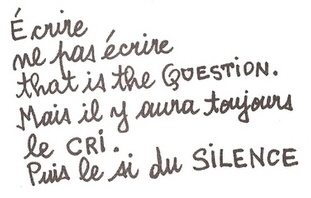 Écrire
ne pas écrire
that is the QUESTION.
Mais il y aura toujours
le CRi.
Puis le si du SiLENCE